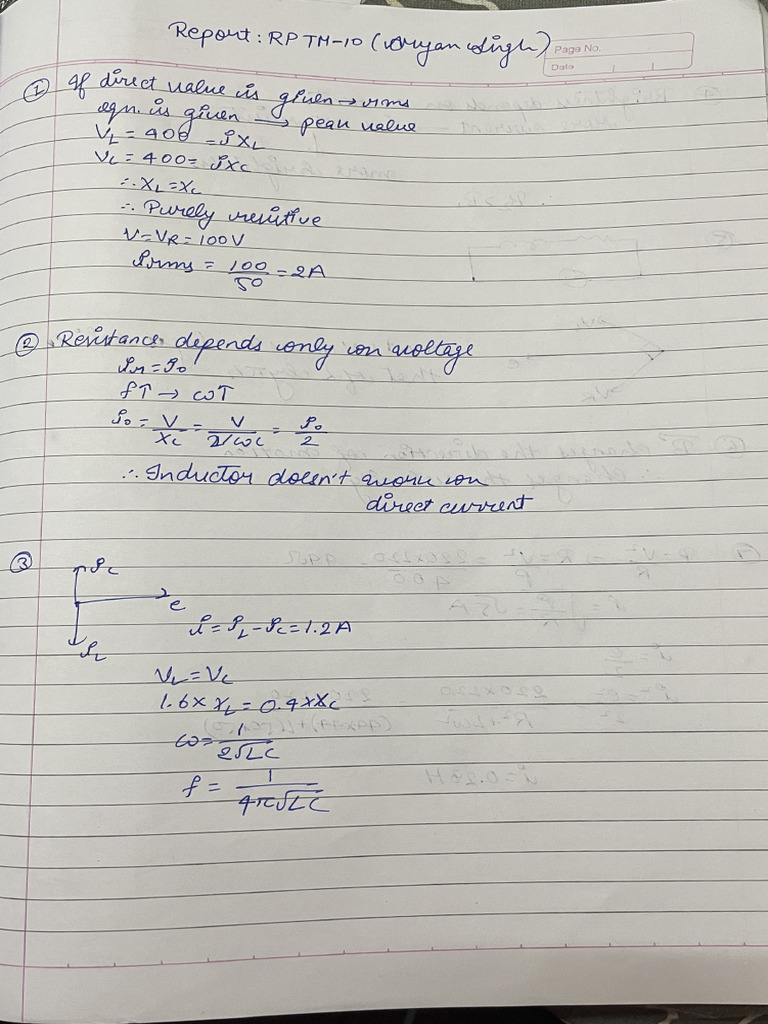 Report: RPTM-10 (Aryan Singh)
Page No.
Date
① If direct value is given → rms
eqn. is given → peak value
V_L = 400 = IX_L
V_C = 400 = IX_C
∴ X_L = X_C
∴ Purely resistive
V = V_R = 100V
I_rms = 100/50 = 2A
② Resistance depends only on voltage
I_R = I_0
f↑ → ω↑
I_0 = V/X_C = V/2/ωC = I_0/2
∴ Inductor doesn't work on
direct current
③
I_C
e
I = I_L - I_C = 1.2A
I_L
V_L = V_C
1.6 × X_L = 0.4 × X_C
ω = 1/2√LC
f = 1/4π√LC